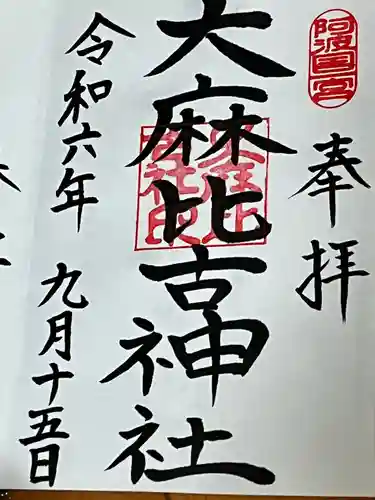 阿波国一宮
奉拝
大麻比古神社
令和六年 九月十五日